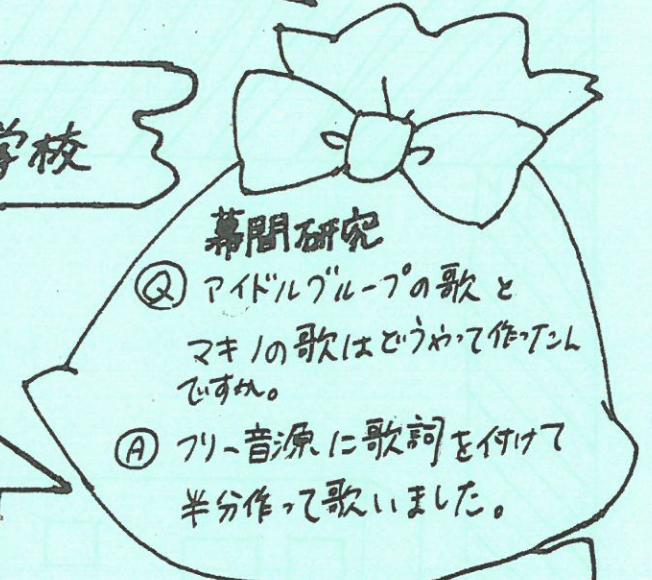 学校
幕間研究
Q アイドルグループの歌と
マキノの歌はどうやって作ったん
ですか。
A フリー音源に歌詞を付けて
半分作って歌いました。